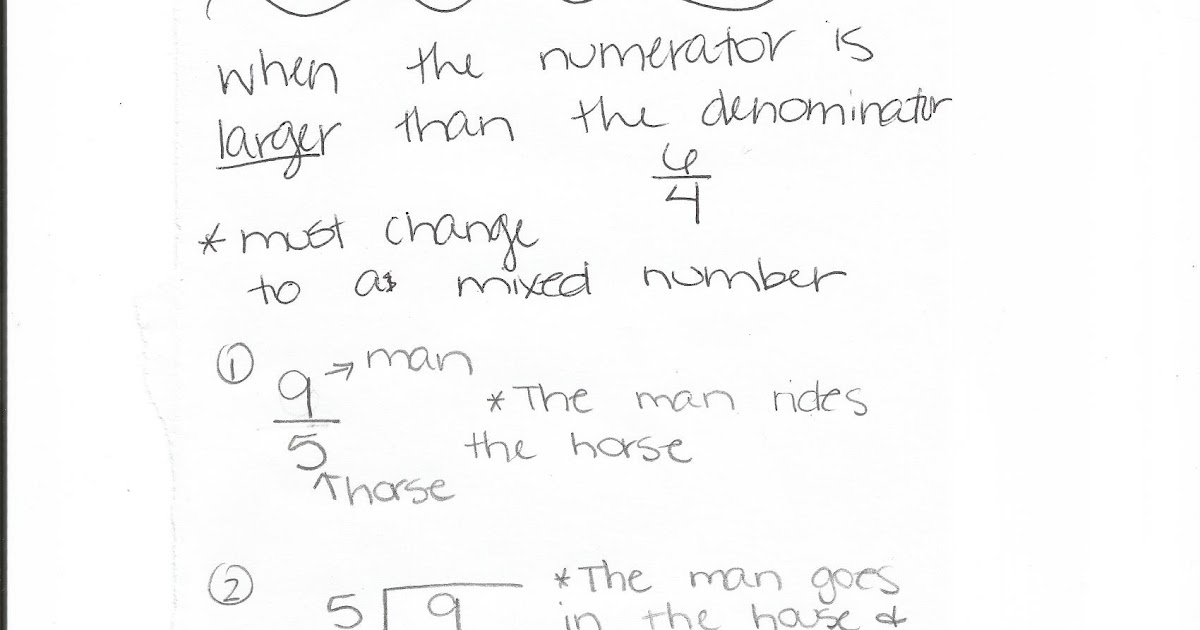 when the numerator is
larger than the denominator
6
4
* must change
to as mixed number
① 9 → man
5
↑ horse
* The man rides
the horse
② 5 9
* The man goes
in the house &